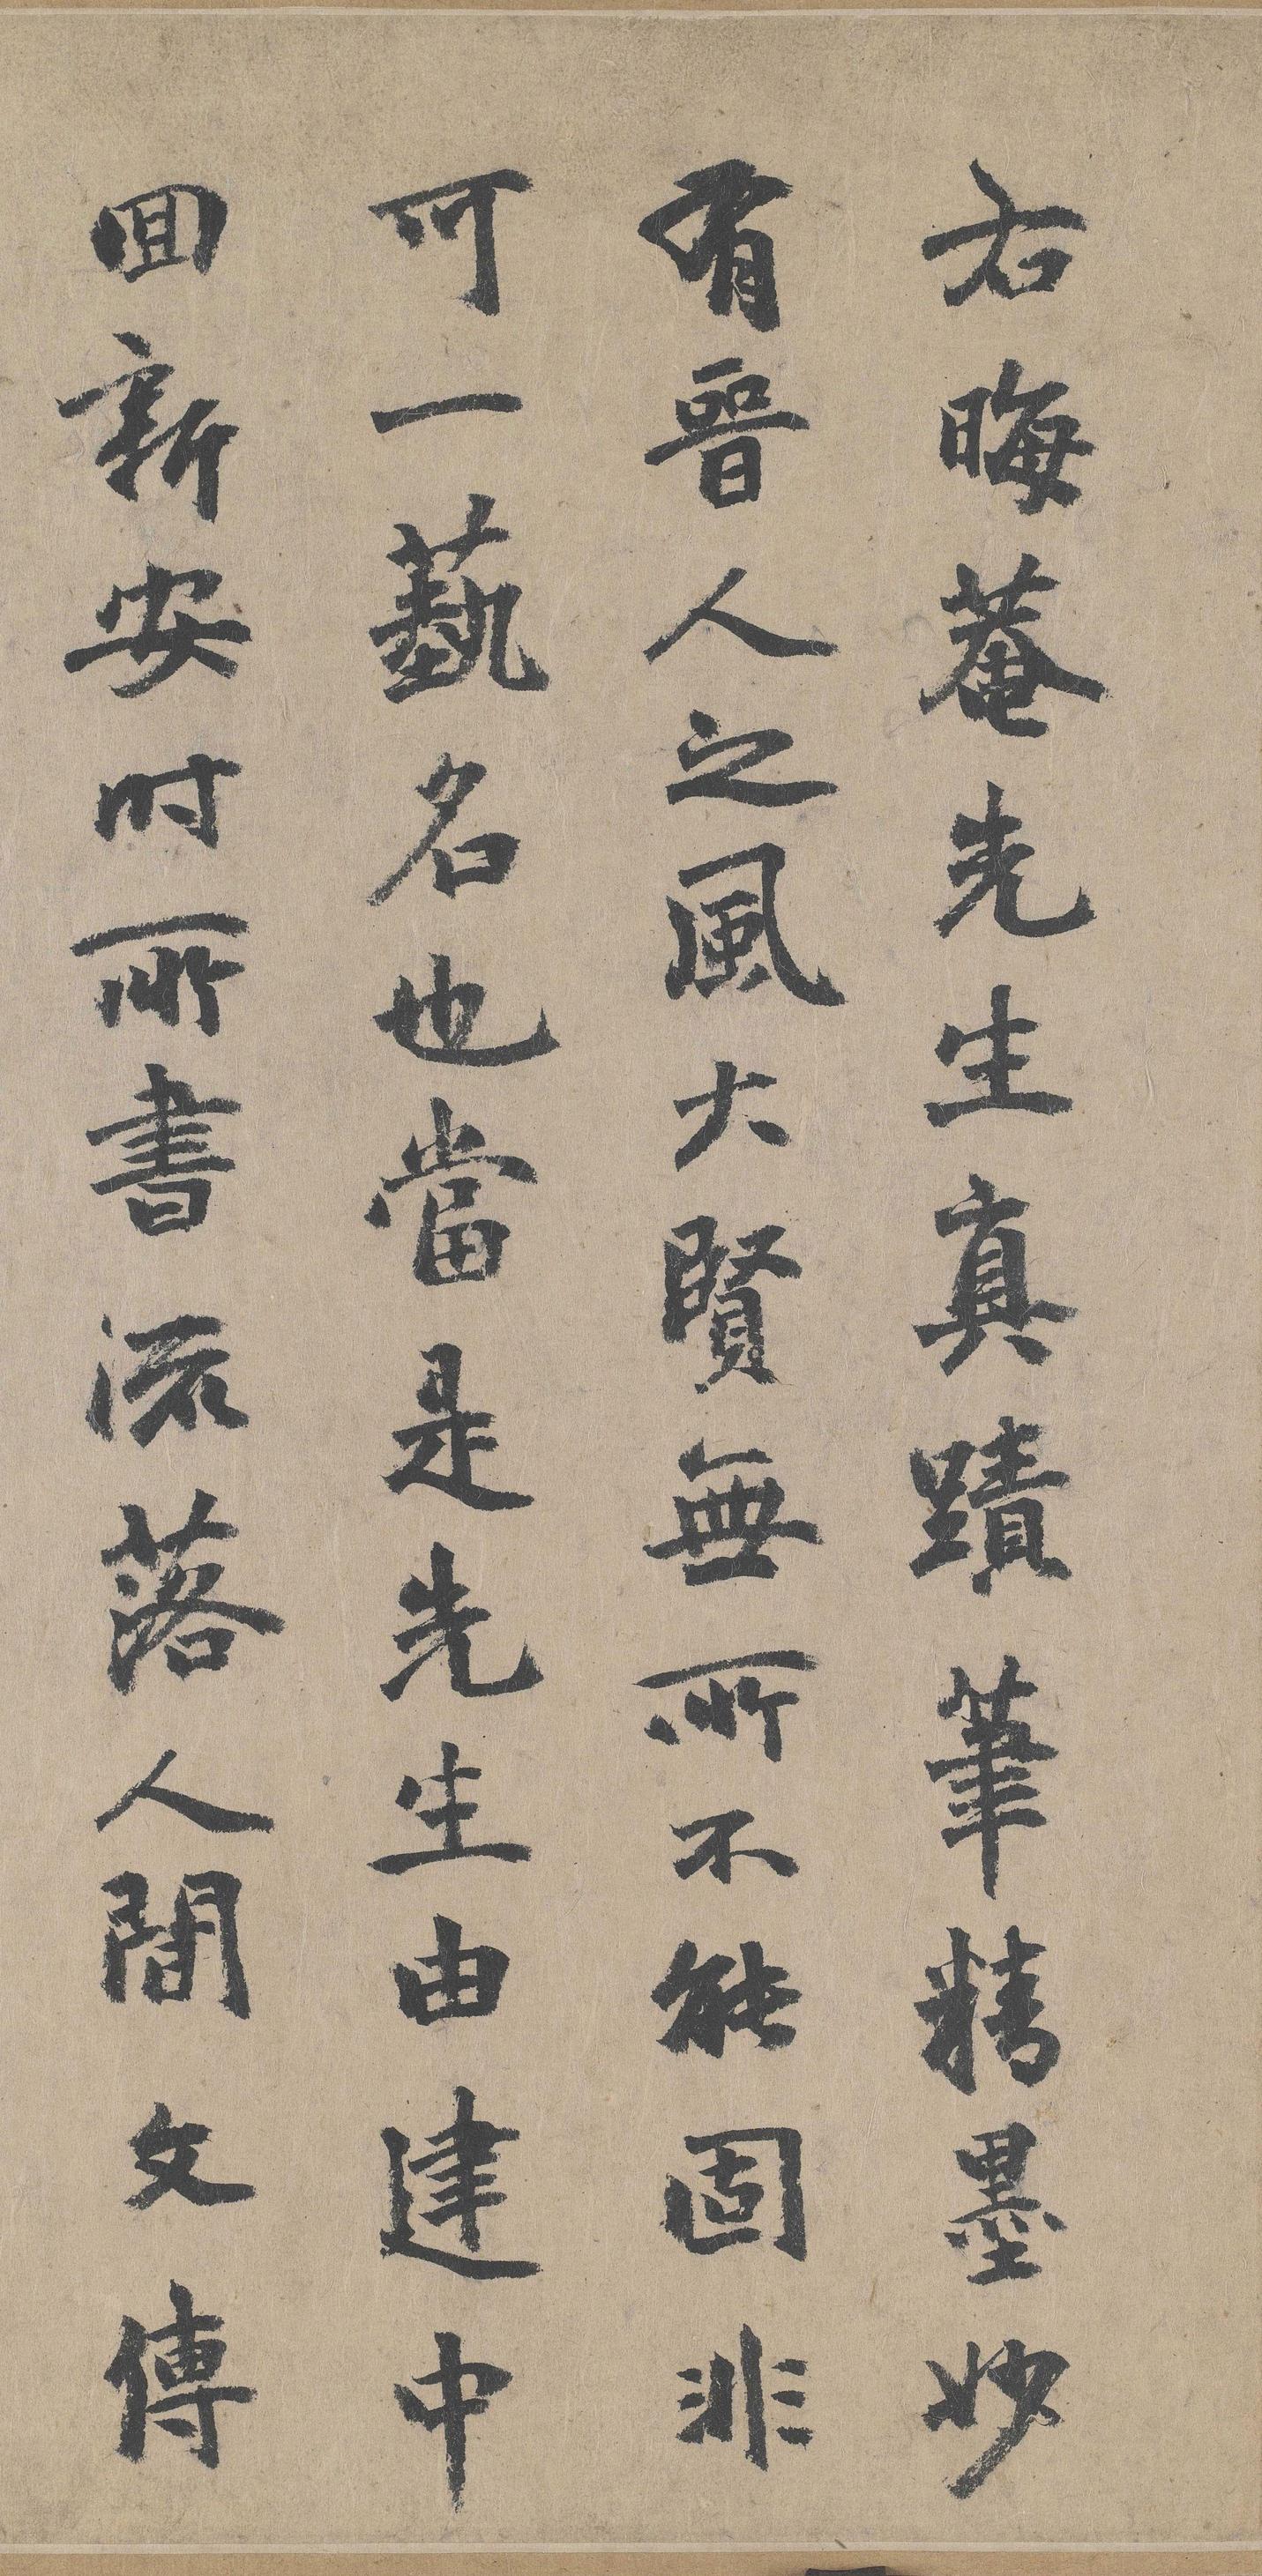 右晦菴先生真蹟筆精墨妙
有晉人之風大賢無所不能固非
可一藝名也當是先生由建中
回新安时所書流落人間文傳